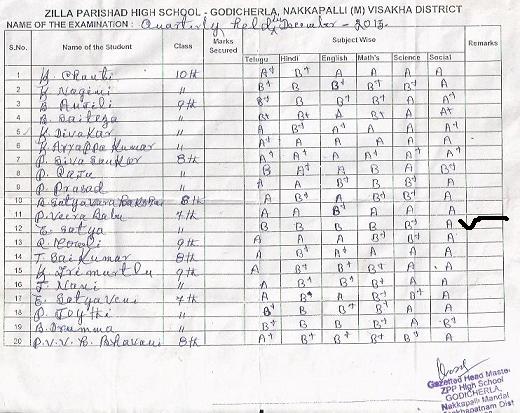 ZILLA PARISHAD HIGH SCHOOL - GODICHERLA, NAKKAPALLI (M) VISAKHA DISTRICT
NAME OF THE EXAMINATION : Quarterly held December - 2013.
S.No. Name of the Student Class Marks Secured Subject Wise Remarks
Telugu Hindi English Math's Science Social
1 K. Chanti 10th A+ B+ A A A A
2 K. Nagini " B B B+ B+ B+ A
3 B. 9th B+ B A B+ A A+
4 B. Saiteja " B+ B+ A B+ A A+
5 K. Divakar " A B+ A+ A A A+
6 K. Arrappa Kumar " A A A A A A
7 P. Siva Sankar 8th A+ A+ A A+ A A+
8 P. Raju " B A+ A B A B+
9 P. Prasad " A A B+ B B+ A
10 B. 8th A B+ A B+ B+ A
11 P. Veera Babu 7th A A B+ A A A
12 E. Satya " B B B B B+ A
13 R. 9th A A A B+ B+ A
14 T. Sai Kumar 8th A B+ A+ A A A
15 K. Trimurtlu 9th A B+ B+ B+ A A
16 T. Nani " A B+ B B+ B+ A
17 E. Satyaveni 7th A B+ A B+ A A
18 P. Jyothi " B+ B B+ B+ A A
19 B. " B B B B+ A B+
20 P.V.V.B. Bhavani 8th A+ B+ A B+ B+ A
Gazetted Head Maste
ZPP High School
GODICHERLA,
Nakkapalli Mandal
khapatnam Dist